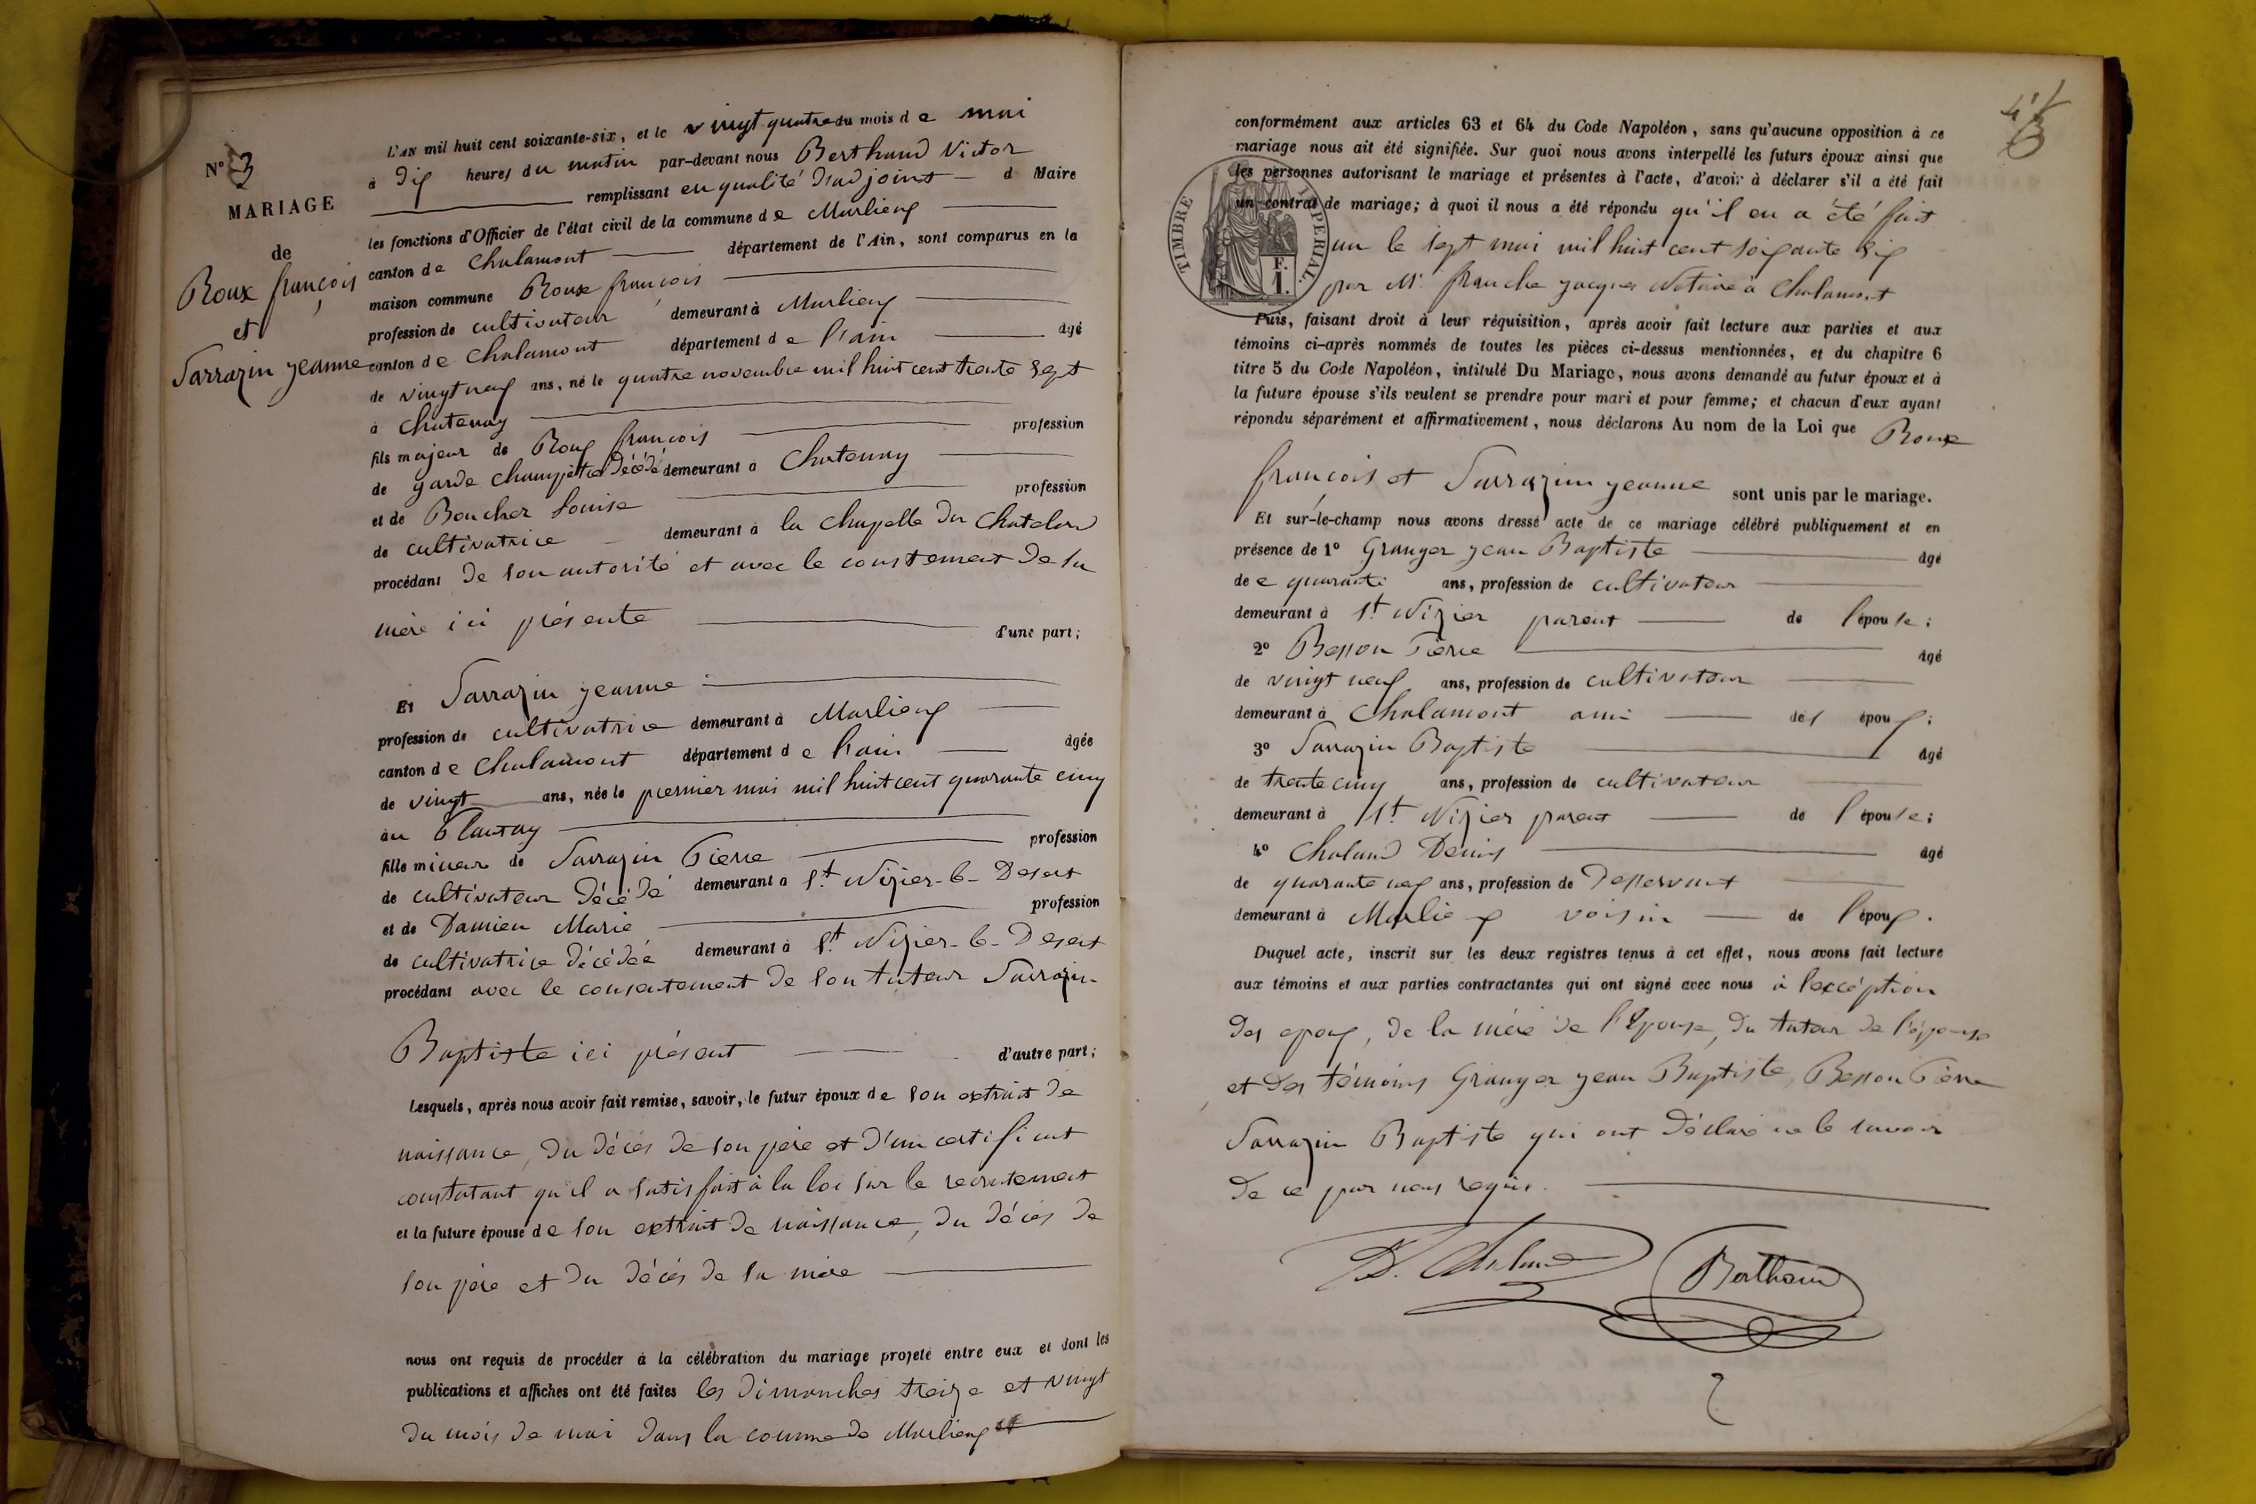 N° 3
MARIAGE
de
Roux françois
et
Sarrazin jeanne
L'AN mil huit cent soixante-six, et le vingt quatre du mois de mai
à dix heures du matin par-devant nous Berthaud Victor
remplissant en qualité d'adjoint d Maire
les fonctions d'Officier de l'état civil de la commune de Marlieux
canton de Chalamont département de l'Ain, sont comparus en la
maison commune Roux françois
profession de cultivateur demeurant à Marlieux
canton de Chalamont département de l'ain âgé
de vingt neuf ans, né le quatre novembre mil huit cent trente sept
à Chatenay
fils majeur de Roux françois profession
de garde champêtre décédé demeurant à Chatenay
et de Boucher Louise profession
de cultivatrice demeurant à la Chapelle du Chatelard
procédant de son autorité et avec le constement de sa
mère ici présente d'une part;
Et Sarrazin jeanne
profession de cultivatrice demeurant à Marlieux
canton de Chalamont département de l'ain âgée
de vingt ans, née le premier mai mil huit cent quarante cinq
au Plantay
fille mineur de Sarrazin Pierre profession
de cultivateur décédé demeurant à St Nizier-le-Desert
et de Damien Marie profession
de cultivatrice décédée demeurant à St Nizier-le-Desert
procédant avec le consentement de son tuteur Sarrazin
Baptiste ici présent d'autre part;
Lesquels, après nous avoir fait remise, savoir, le futur époux de son extrait de
naissance, du décès de son père et d'un certificat
constatant qu'il a satisfait à la loi sur le recrutement
et la future épouse de son extrait de naissance, du décès de
son père et du décès de sa mère
nous ont requis de procéder à la célébration du mariage projeté entre eux et dont les
publications et affiches ont été faites les dimanches treize et vingt
du mois de mai dans la commune de Marlieux
conformément aux articles 63 et 64 du Code Napoléon, sans qu'aucune opposition à ce
mariage nous ait été signifiée. Sur quoi nous avons interpellé les futurs époux ainsi que
les personnes autorisant le mariage et présentes à l'acte, d'avoir à déclarer s'il a été fait
un contrat de mariage; à quoi il nous a été répondu qu'il en a été fait
un le sept mai mil huit cent soixante six
par Me franche jacques Notaire à Chalamont
TIMBRE IMPERIAL
F.
1.
Puis, faisant droit à leur réquisition, après avoir fait lecture aux parties et aux
témoins ci-après nommés de toutes les pièces ci-dessus mentionnées, et du chapitre 6
titre 5 du Code Napoléon, intitulé Du Mariage, nous avons demandé au futur époux et à
la future épouse s'ils veulent se prendre pour mari et pour femme; et chacun d'eux ayant
répondu séparément et affirmativement, nous déclarons Au nom de la Loi que Roux
françois et Sarrazin jeanne sont unis par le mariage.
Et sur-le-champ nous avons dressé acte de ce mariage célébré publiquement et en
présence de 1° Granger jean Baptiste âgé
de quarante ans, profession de cultivateur
demeurant à St Nizier parent de l'épouse;
2° Besson Pierre âgé
de vingt neuf ans, profession de cultivateur
demeurant à Chalamont ami des époux;
3° Sarrazin Baptiste âgé
de trente cinq ans, profession de cultivateur
demeurant à St Nizier parent de l'épouse;
4° Chaland Denis âgé
de quarante neuf ans, profession de Desservant
demeurant à Marlieux voisin de l'époux.
Duquel acte, inscrit sur les deux registres tenus à cet effet, nous avons fait lecture
aux témoins et aux parties contractantes qui ont signé avec nous à l'excéption
des epoux, de la mère de l'épouse, du tuteur de l'épouse
et des témoins Granger jean Baptiste, Besson Pierre
Sarrazin Baptiste qui ont déclaré ne le savoir
de ce par nous requis.
D. Chaland Berthaud